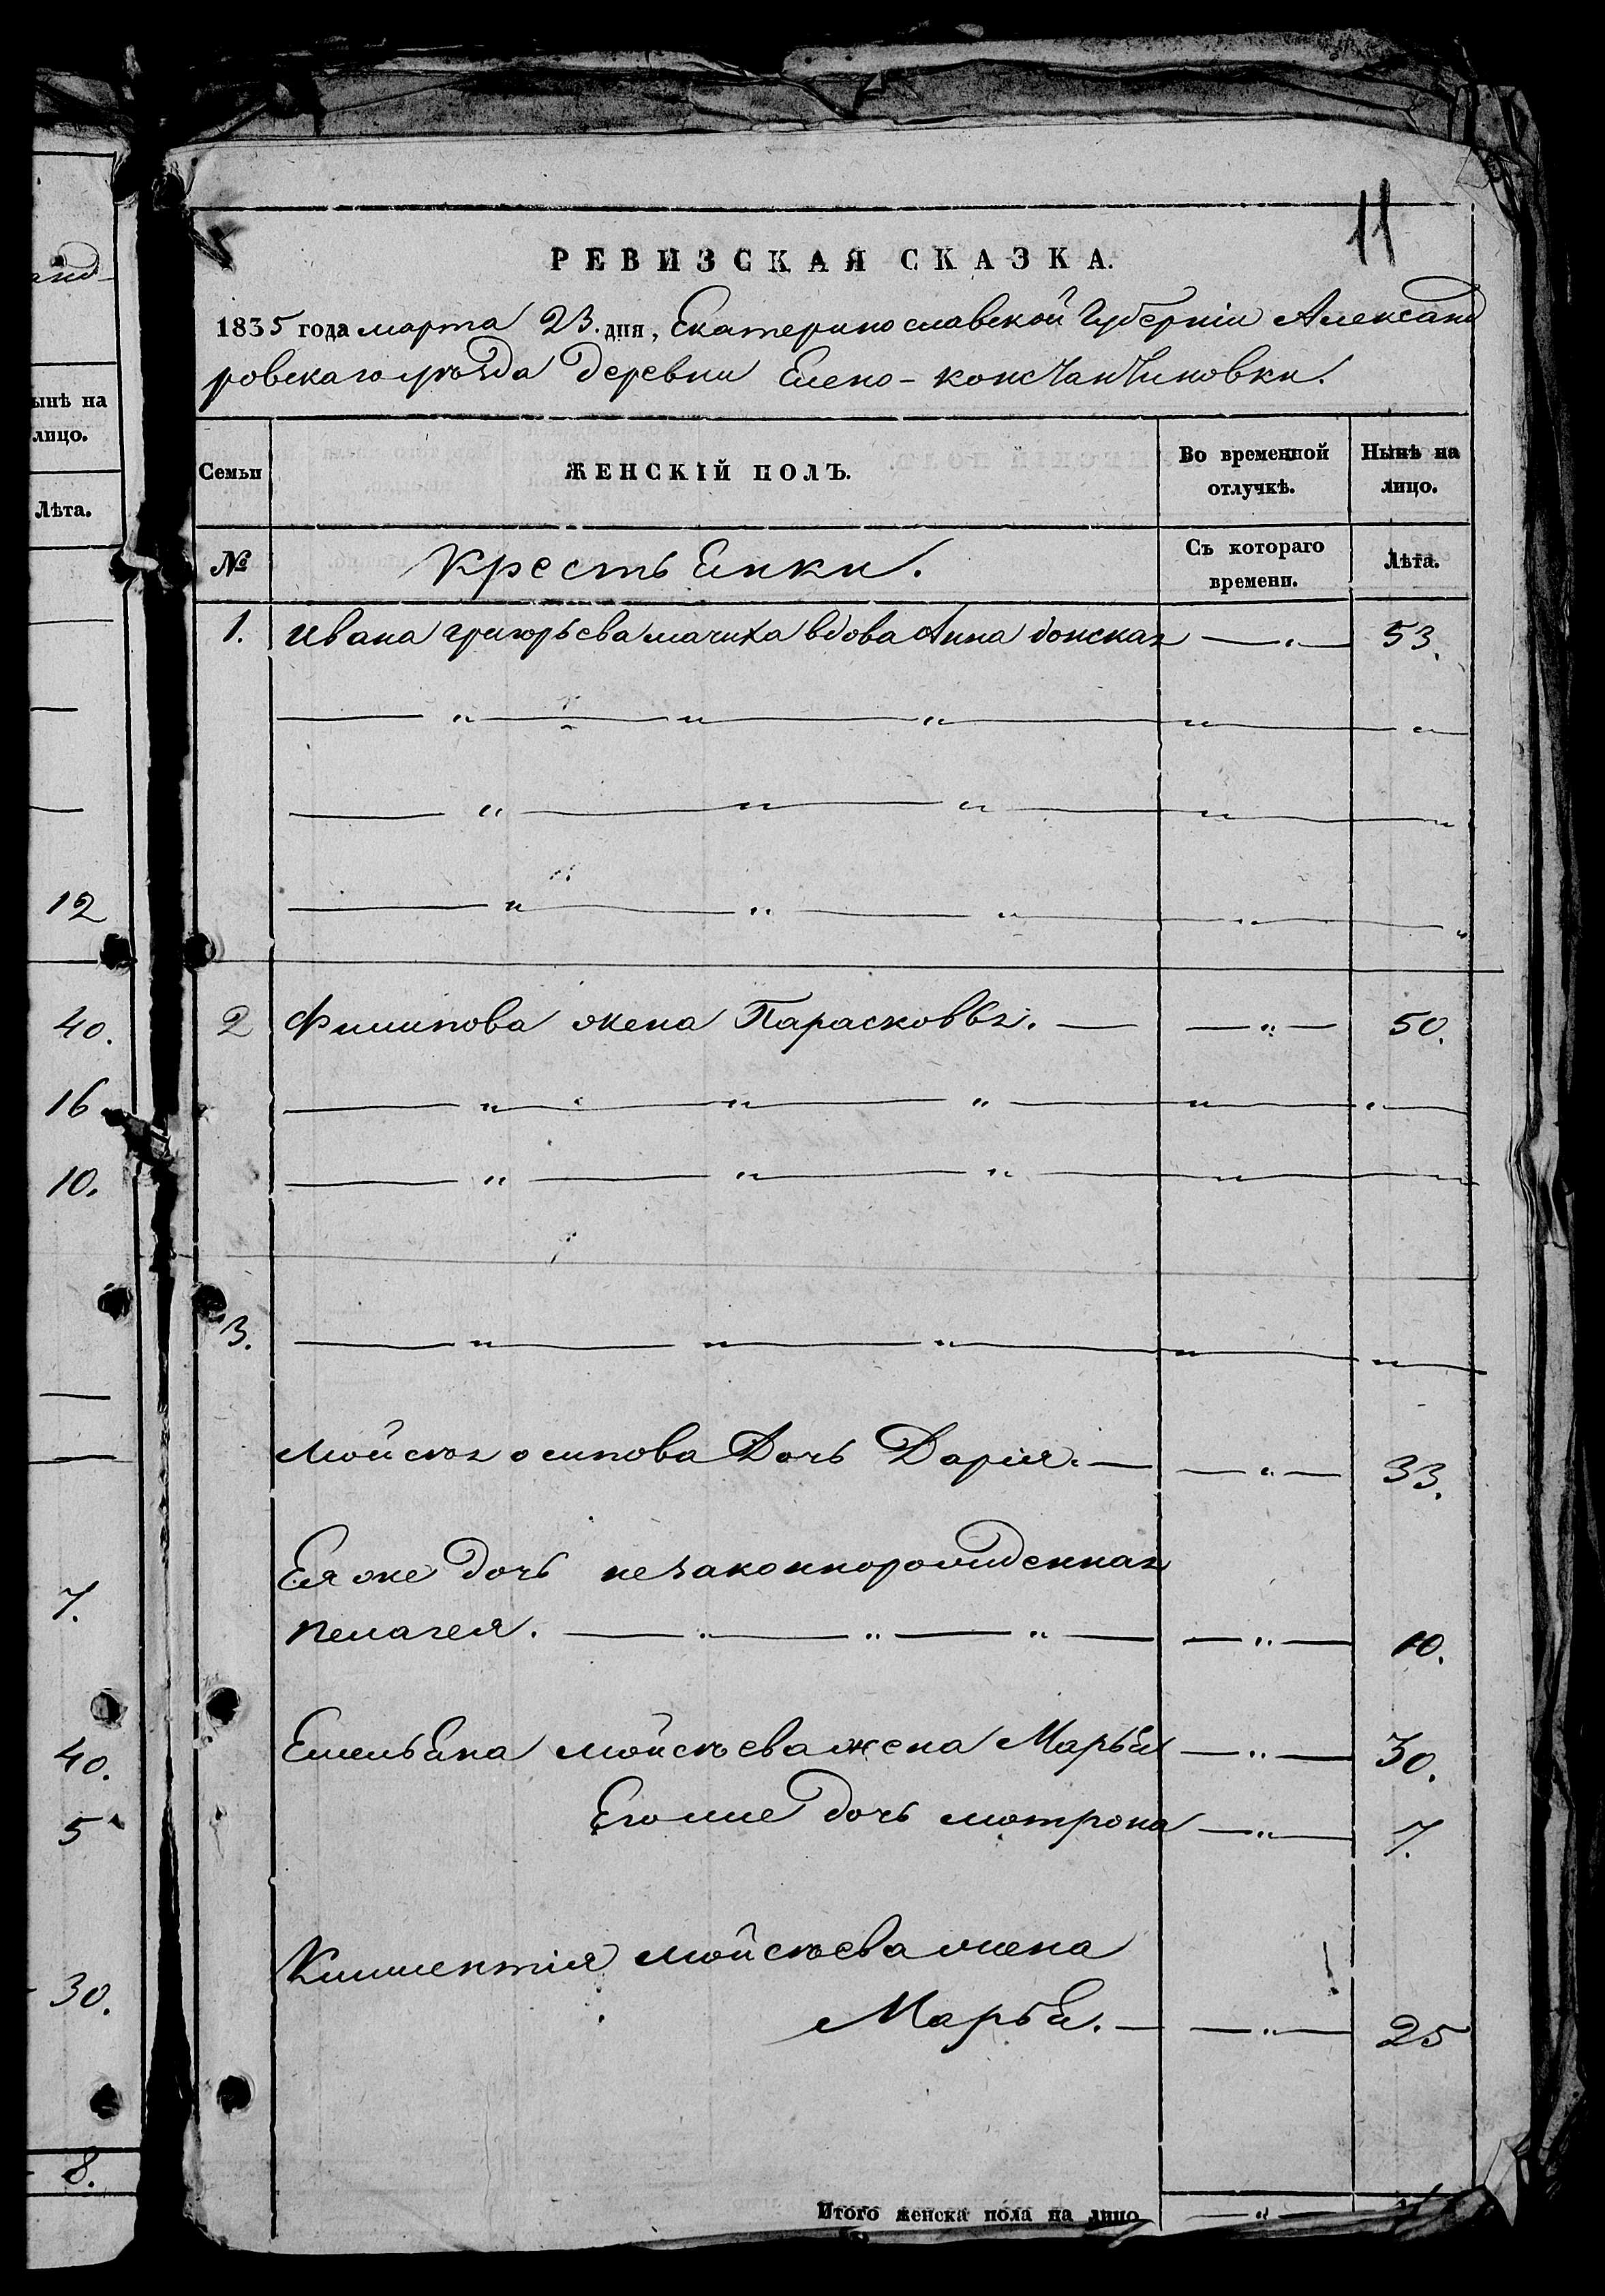 11
РЕВИЗСКАЯ СКАЗКА.
1835 года марта 23. дня, Екатеринославской Губерніи Александ
ровскаго уѣзда Деревни Елено-константиновки.
Семьи
ЖЕНСКІЙ ПОЛЪ.
Во временной отлучкѣ.
Нынѣ на лицо.
№
Крестьянки.
Съ котораго времени.
Лѣта.
1. Ивана григорьева мачиха вдова Анна донская — „ — 53.
2 Филипова жена Парасковья. — — „ — 50.
3.
Мойсея осипова Дочь Дарія. — — „ — 33.
Ея же дочь незаконнорожденная
пелагея. — „ — „ — „ — — „ — 10.
Емельяна мойсѣева жена Марья — „ — 30.
Его же дочь мотрона — „ — 7.
Климентія мойсѣева жена
Марья. — — „ — 25
Итого женска пола на лицо — „ —
анд
ынѣ на
лицо.
Лѣта.
12
40.
16
10.
7.
40.
5
30.
8.